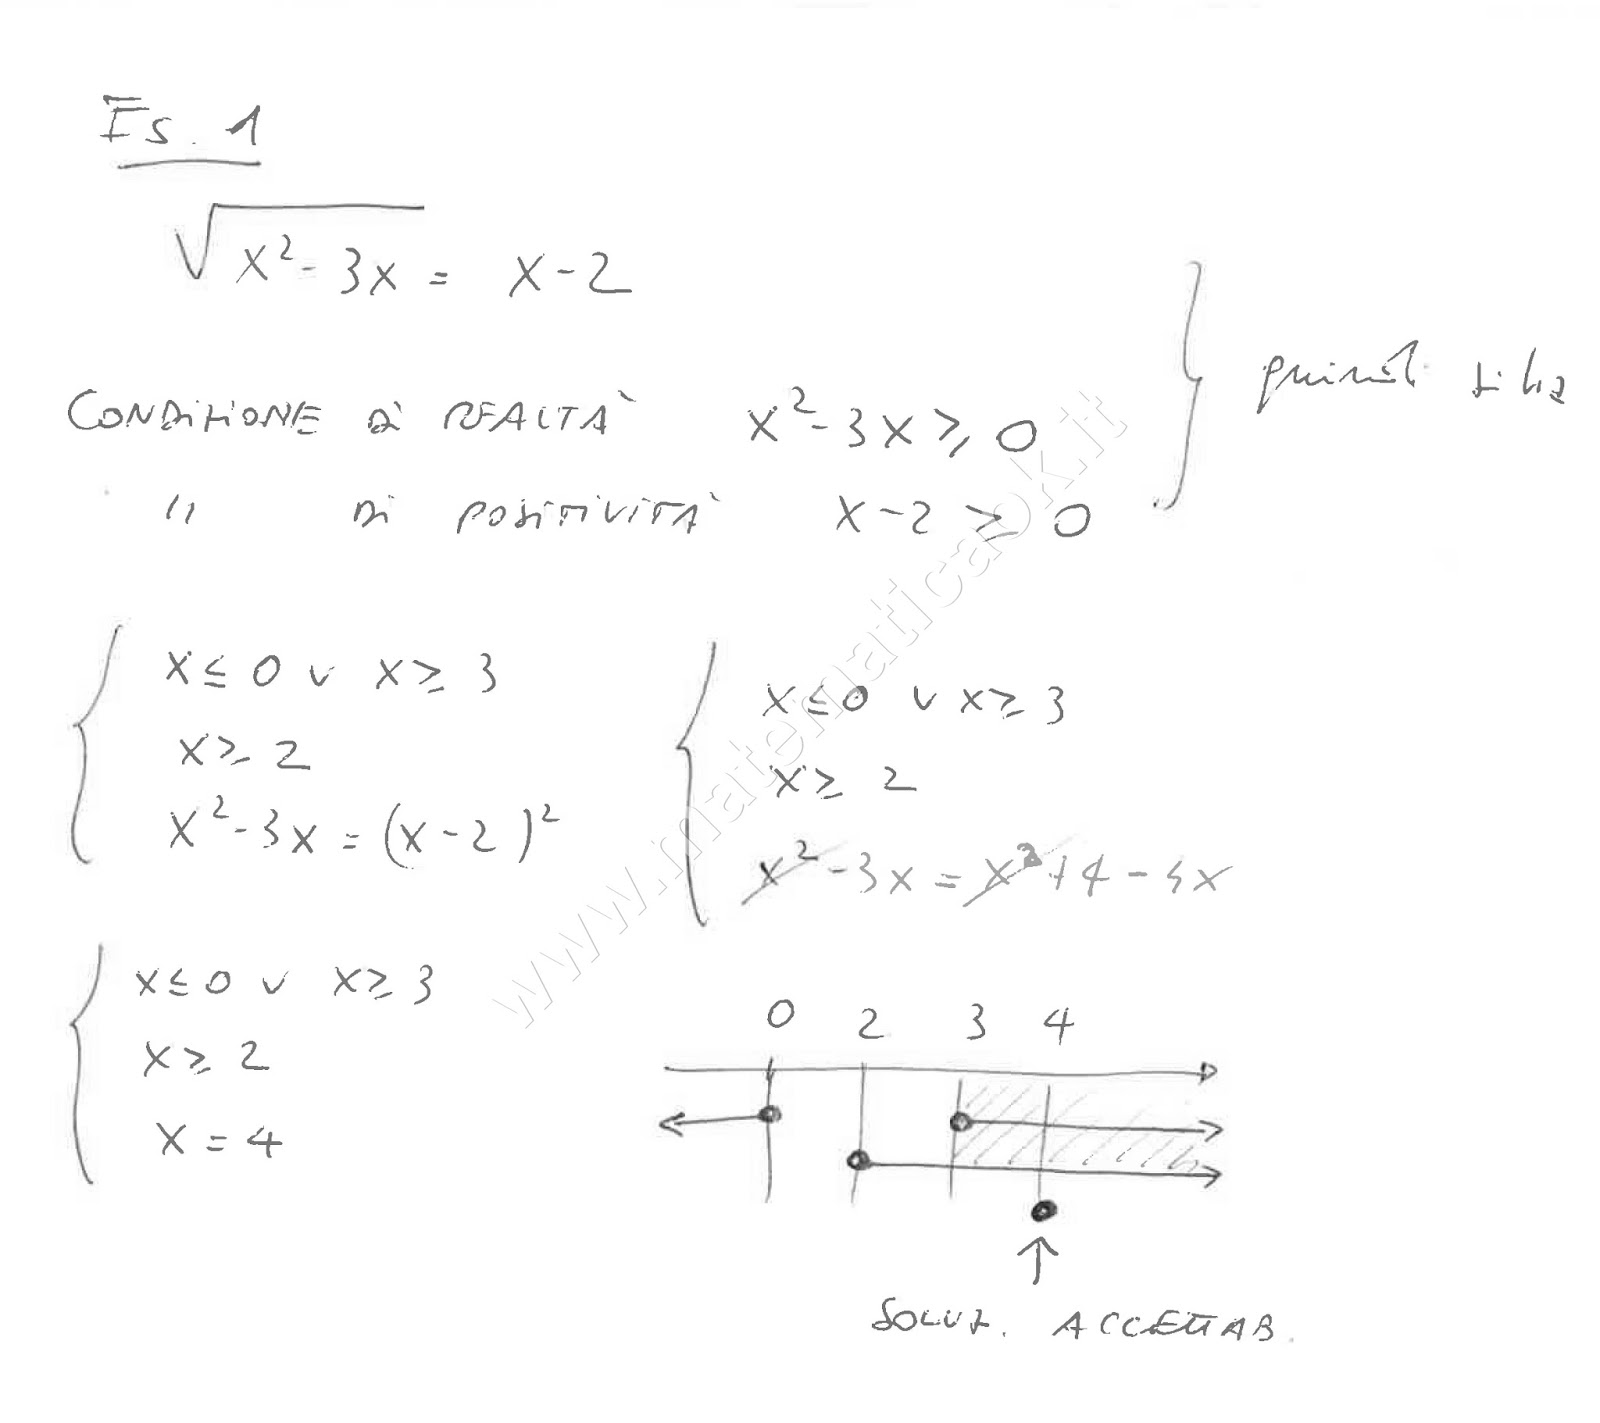 Es. 1
√x²-3x = x-2
CONDIZIONE DI REALTÀ x²-3x ≥ 0
" DI POSITIVITÀ x-2 ≥ 0
} quindi si ha
{ x ≤ 0 ∨ x ≥ 3
x ≥ 2
x²-3x = (x-2)²
{ x ≤ 0 ∨ x ≥ 3
x ≥ 2
x²-3x = x²+4-4x
{ x ≤ 0 ∨ x ≥ 3
x ≥ 2
x = 4
0 2 3 4
SOLUZ. ACCETTAB.
www.matematicaok.it